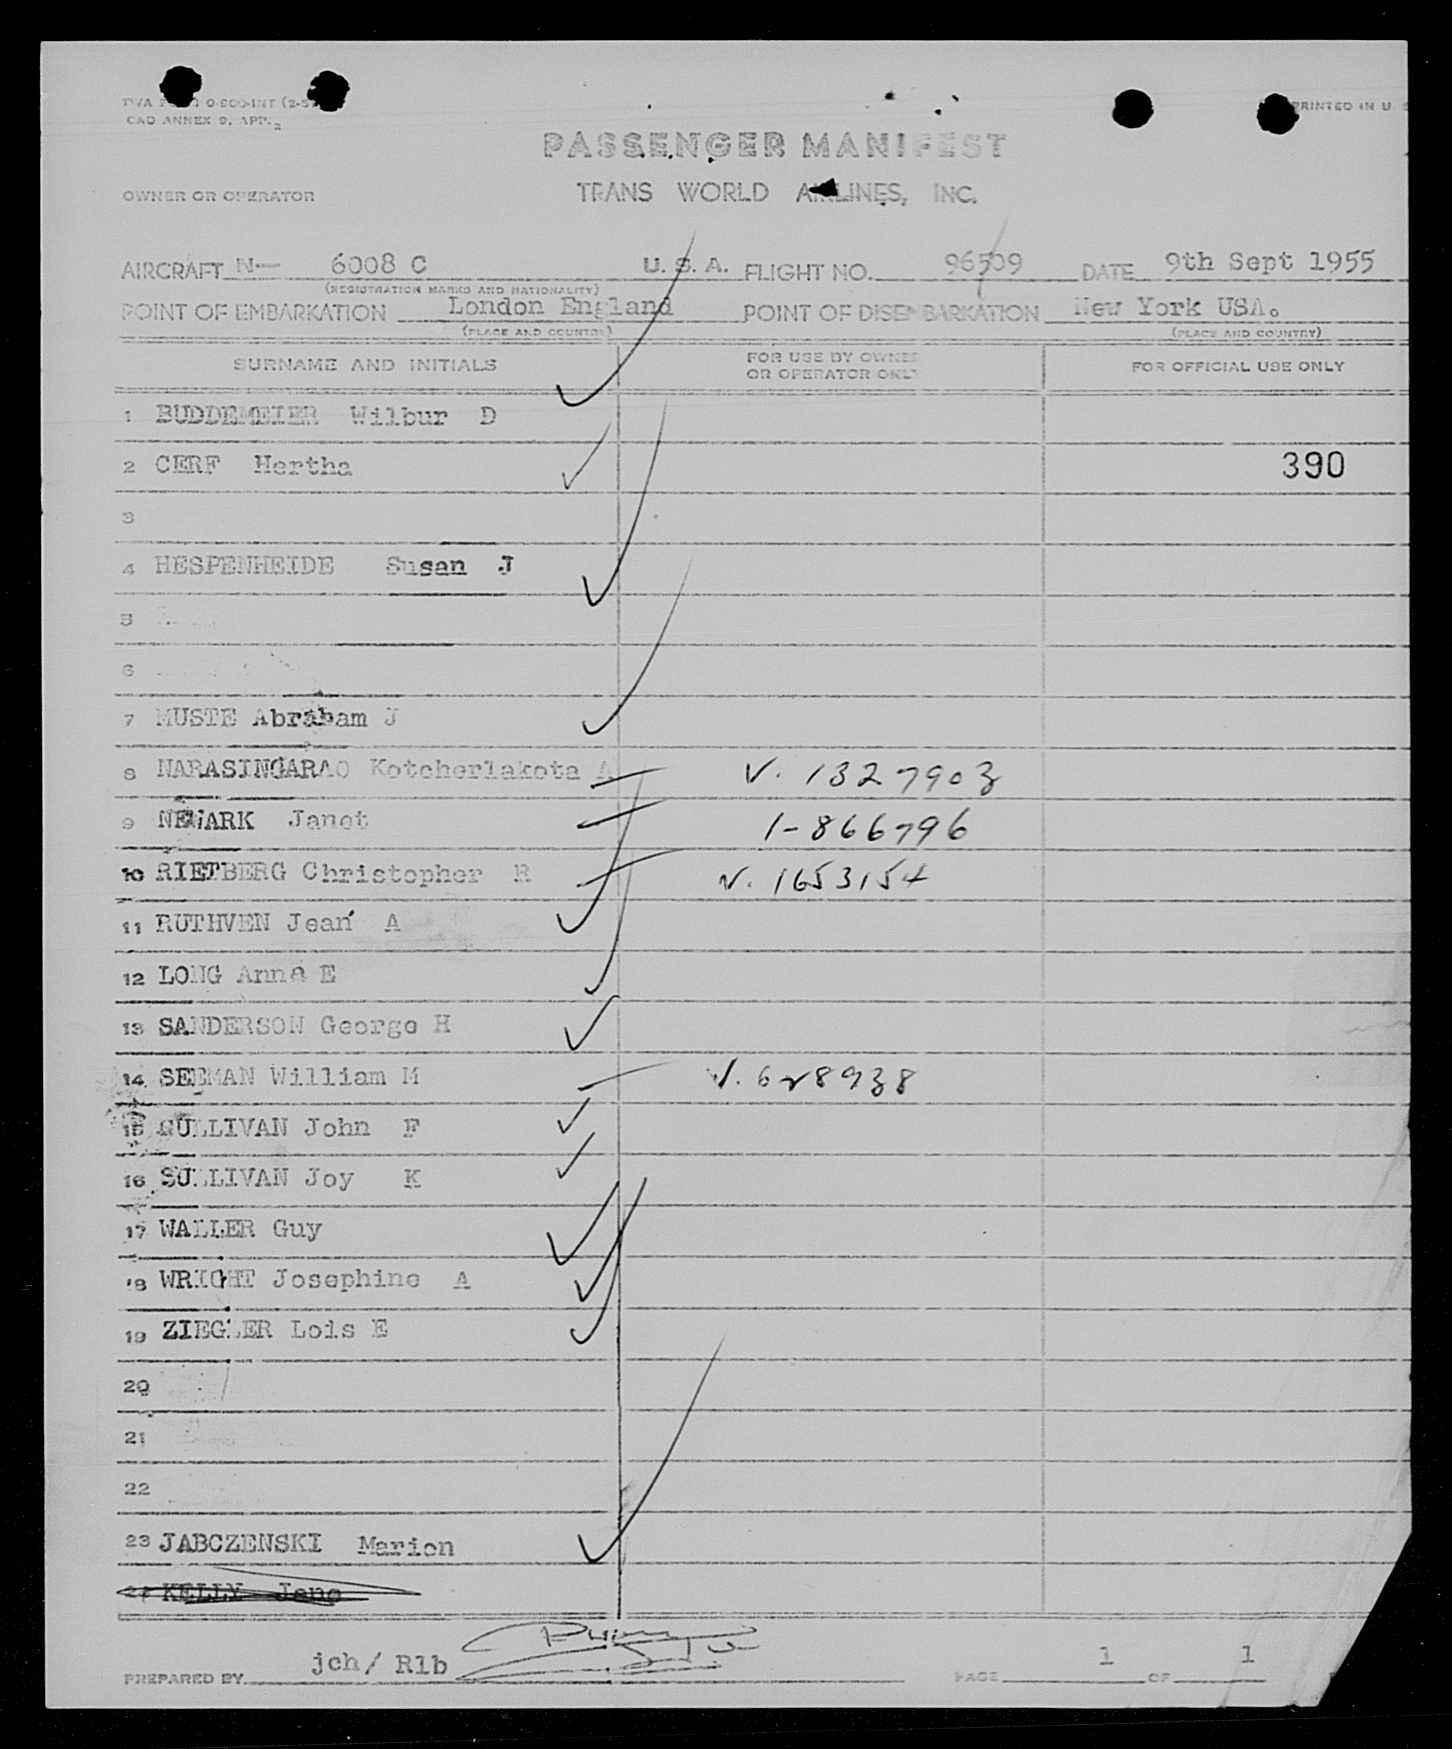 CAO ANNEX 9, APP. 2
PRINTED IN U. S
PASSENGER MANIFEST
OWNER OR OPERATOR TRANS WORLD AIRLINES, INC.
AIRCRAFT N— 6008 C U. S. A. FLIGHT NO. 96509 DATE 9th Sept 1955
(REGISTRATION MARKS AND NATIONALITY)
POINT OF EMBARKATION London England POINT OF DISEMBARKATION New York USA.
(PLACE AND COUNTRY) (PLACE AND COUNTRY)
SURNAME AND INITIALS FOR USE BY OWNER OR OPERATOR ONLY FOR OFFICIAL USE ONLY
1 BUDDEMEIER Wilbur D
2 CERF Hertha 390
3
4 HESPENHEIDE Susan J
5
6
7 MUSTE Abraham J
8 NARASINGARAO Kotcherlakota A V. 1327903
9 NEWARK Janet 1-866796
10 RIETBERG Christopher R V. 1653154
11 RUTHVEN Jean A
12 LONG Anna E
13 SANDERSON George H
14 SEEMAN William M V. 628938
15 SULLIVAN John F
16 SULLIVAN Joy K
17 WALLER Guy
18 WRIGHT Josephine A
19 ZIEGLER Lois E
20
21
22
23 JABCZENSKI Marion
24 KELLY Jane
PREPARED BY jch/ Rlb PAGE 1 OF 1